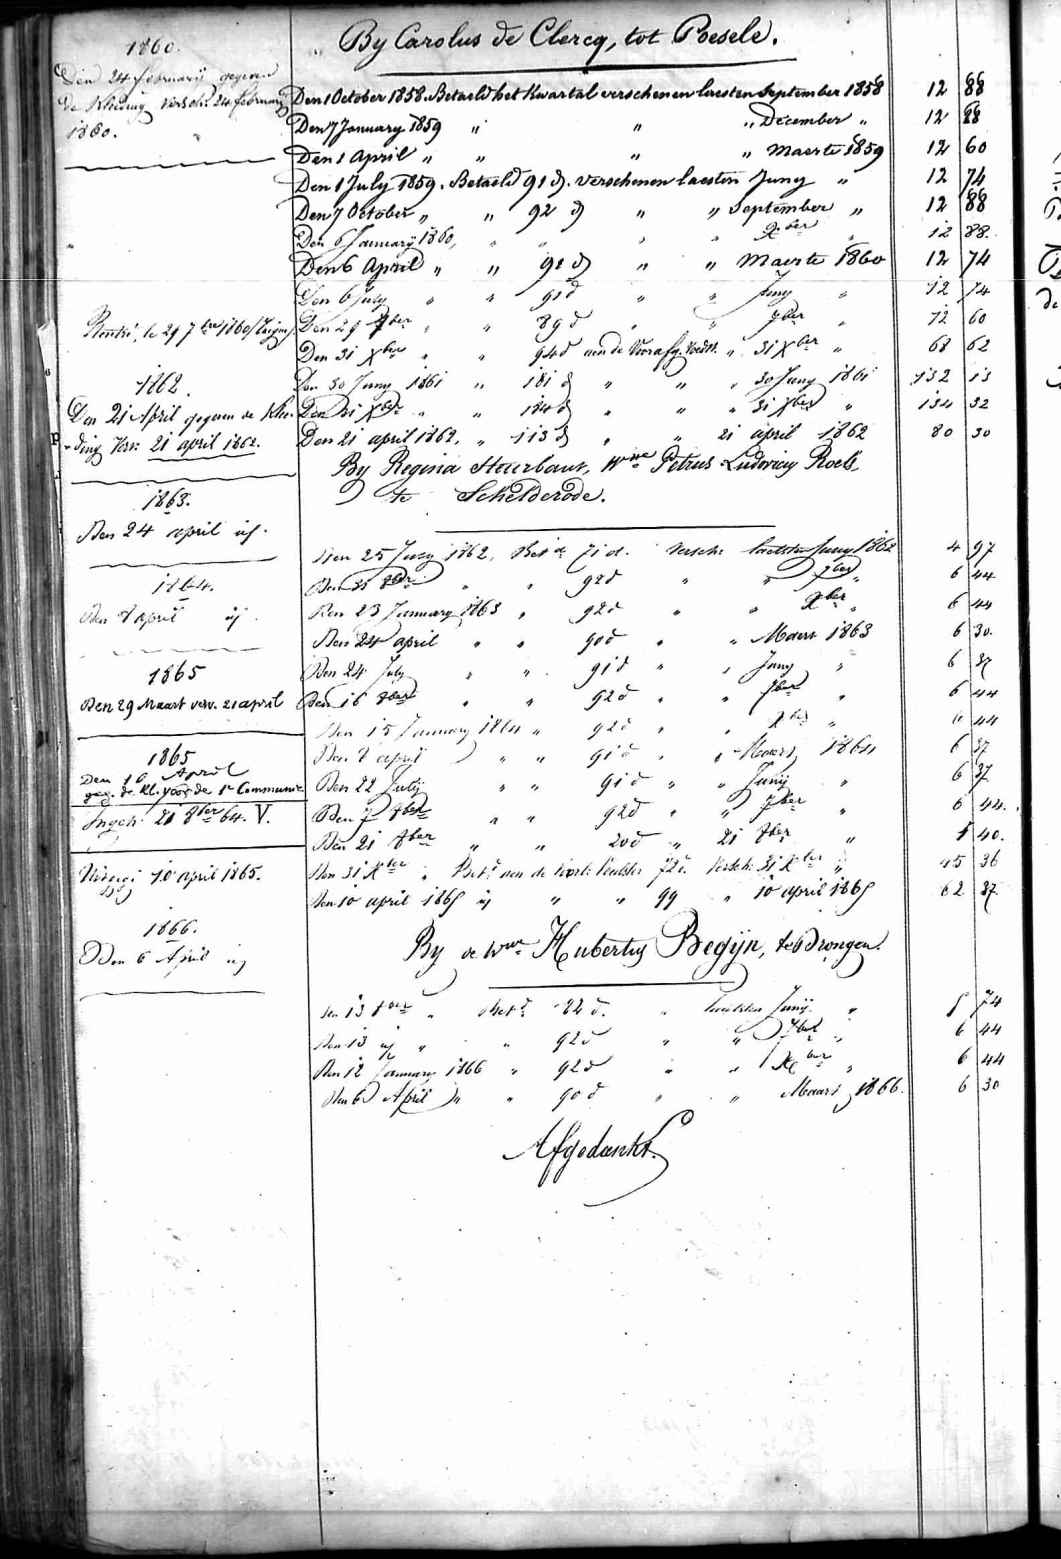 1860.
Den 24 februarij gegeven
de Kleeding versch. 24 february
1860.
Rentré, le 29 7bre 1860
1862.
Den 21 April gegeven de Klee-
ding Vers: 21 april 1862.
1863.
Den 24 april id.
1864.
Den 8 april id.
1865
Den 29 Maart verv. 21 april
1865
Den 10 April
geg. de Kl. voor de 1e Communie
Ingeh. 21 8ber 64. V.
10 april 1865.
1866.
Den 6 April id
By Carolus de Clercq, tot Poesele.
Den 1 October 1858. Betaeld het Kwartal verschenen laesten September 1858 12 88
Den 7 January 1859 " " " December " 12 88
Den 1 April " " " " Maerte 1859 12 60
Den 1 July 1859. Betaeld 91 d. verschenen laesten Juny " 12 74
Den 7 October " " 92 d " " September " 12 88
Den 6 January 1860, " " " " Xber " 12 88
Den 6 April " " 91 d " " Maerte 1860 12 74
Den 6 July " " 91 d " " Juny " 12 74
Den 29 7ber " " 89 d " " 7ber " 12 60
Den 31 Xber " " 94 d aen de " 31 Xber " 68 62
Den 30 Juny 1861 " 181 d " " " 30 Juny 1861 132 13
Den 31 Xber " " 184 d " " " 31 Xber " 134 32
Den 21 april 1862, " 113 d " " 21 april 1862 80 30
By Regina Steurbaut, Wwe Petrus Ludovicus Roels,
te Schelderode.
Den 25 July 1862, Betd 71 d. versch. laatsten Juny 1862 4 97
Den 31 8ber " " 92 d " " 7ber " 6 44
Den 23 January 1863 " 92 d " " Xber " 6 44
Den 24 april " " 90 d " " Maart 1863 6 30.
Den 24 July " " 91 d " " Juny " 6 37
Den 16 8ber " " 92 d " " 7ber " 6 44
Den 15 January 1864 " 92 d " " Xber " 6 44
Den 8 april " " 91 d " " Maart 1864 6 37
Den 22 July " " 91 d " " Junij " 6 37
Den 7 8ber " " 92 d " " 7ber " 6 44.
Den 21 8ber " " 20 d " 21 8ber " 1 40.
Den 31 Xber " Betd aen de 72 d. Versch. 31 Xber " 45 36
Den 10 april 1865 id " " 99 " 10 april 1865 62 37
By de Wwe Hubertus Begijn, te Drongen.
Den 13 8ber " Betd 82 d. " laatsten Junij " 5 74
Den 13 id " " 92 d " " 7ber " 6 44
Den 12 January 1866 " 92 d " " Xber " 6 44
Den 6 April " " 90 d " " Maart 1866. 6 30
Afgedankt.